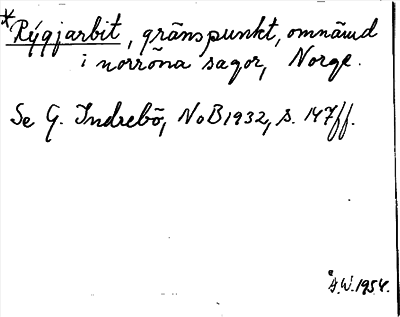 *Rýgjarbit, gränspunkt, omnämnd
i norröna sagor, Norge.
Se G. Indrebö, NoB 1932, s. 147ff.
Å.W. 1954.